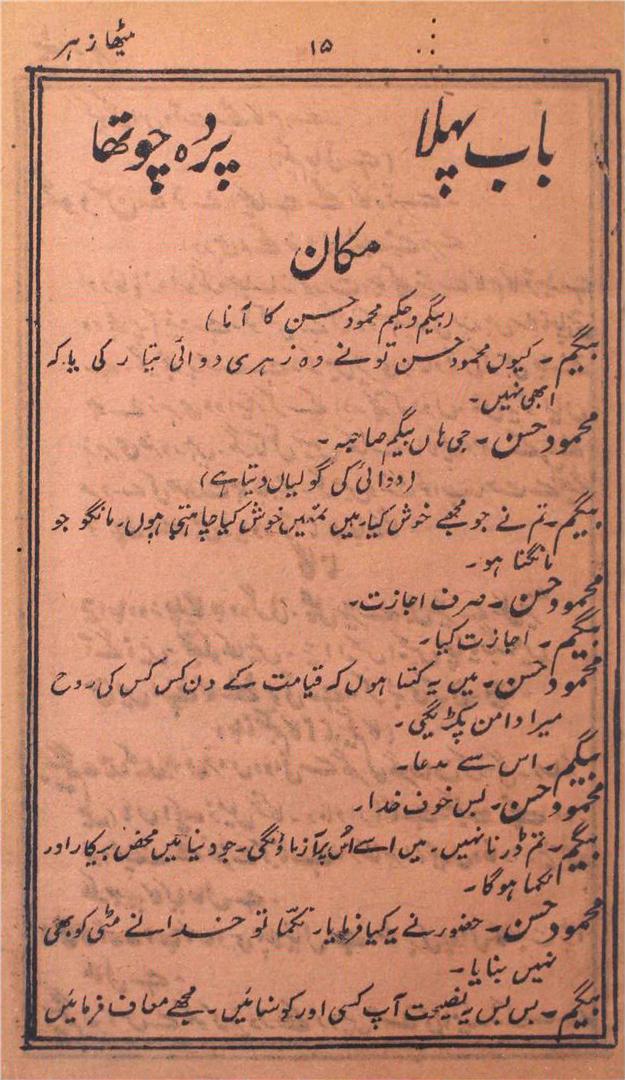 میٹھا زہر ۱۵
باب پہلا پردہ چوتھا
مکان
(بیگم و حکیم محمود حسن کا آنا)
بیگم۔ کیوں محمود حسن تونے وہ زہری دوائی تیار کی یا کہ
ابھی نہیں۔
محمود حسن۔ جی ہاں بیگم صاحبہ۔
(دوائی کی گولیاں دیتا ہے)
بیگم۔ تم نے جو مجھے خوش کیا۔ میں تمہیں خوش کیا چاہتی ہوں۔ مانگو جو
مانگنا ہو۔
محمود حسن۔ صرف اجازت۔
بیگم۔ اجازت کیا۔
محمود حسن۔ میں یہ کہتا ہوں کہ قیامت کے دن کس کس کی روح
میرا دامن پکڑیگی۔
بیگم۔ اس سے مدعا۔
محمود حسن۔ بس خوف خدا۔
بیگم۔ تم ڈرنا نہیں۔ میں اسے اُس پر آزماؤنگی۔ جو دنیا میں محض بیکار اور
نکما ہوگا۔
محمود حسن۔ حضور نے یہ کیا فرمایا۔ نکمّا تو خدا نے مٹی کو بھی
نہیں بنایا۔
بیگم۔ بس بس یہ نصیحت آپ کسی اور کو سنائیں۔ مجھے معاف فرمائیں